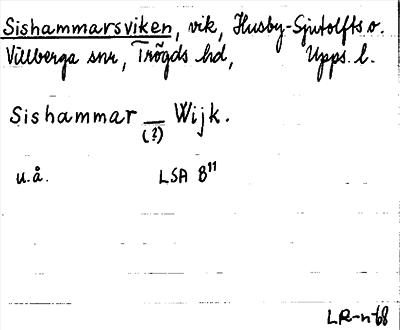 Sishammarsviken, vik, Husby-Sjutolfts o.
Villberga snr, Trögds hd, Upps. l.
Sishammar — Wijk.
(?)
u.å. LSA 8¹¹
LR-n-68